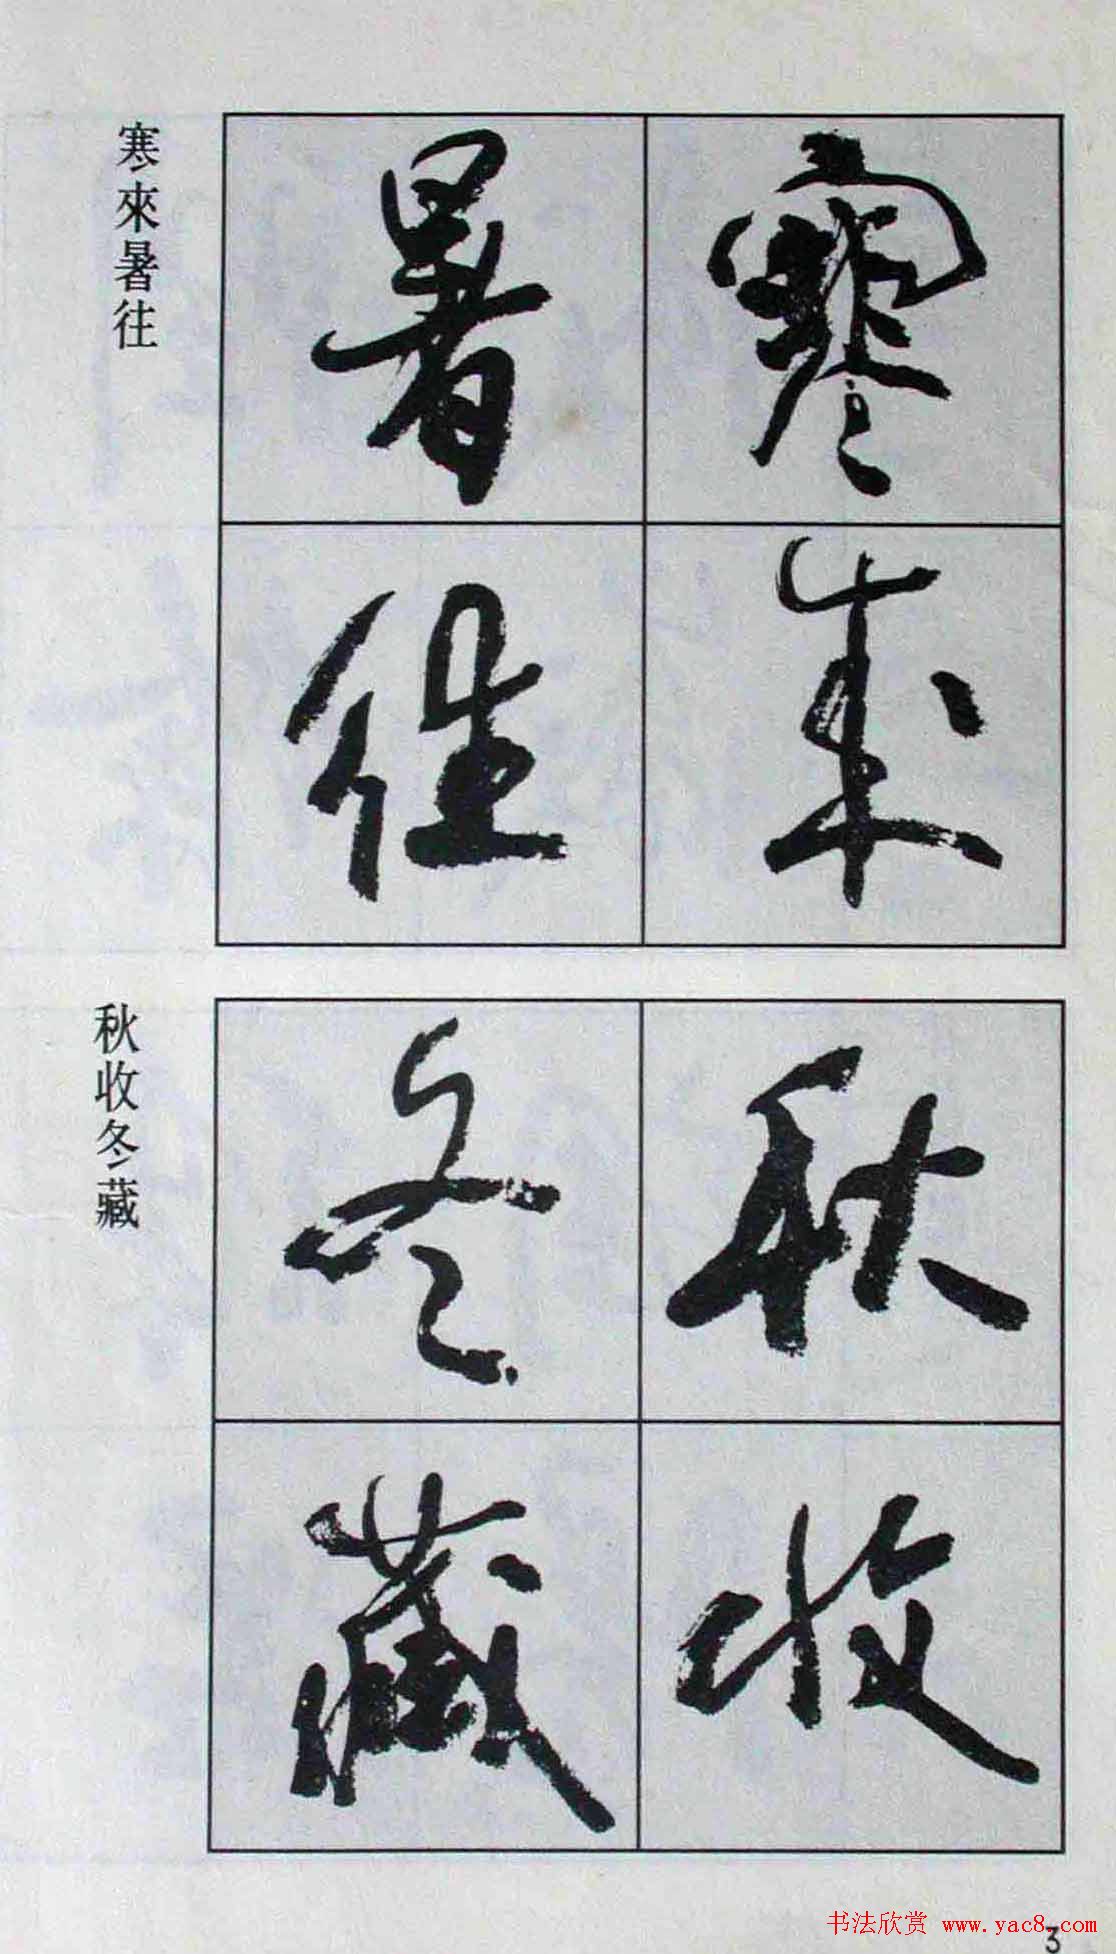 寒來
暑往
寒來暑往
秋收
冬藏
秋收冬藏
3
书法欣赏 www.yac8.com